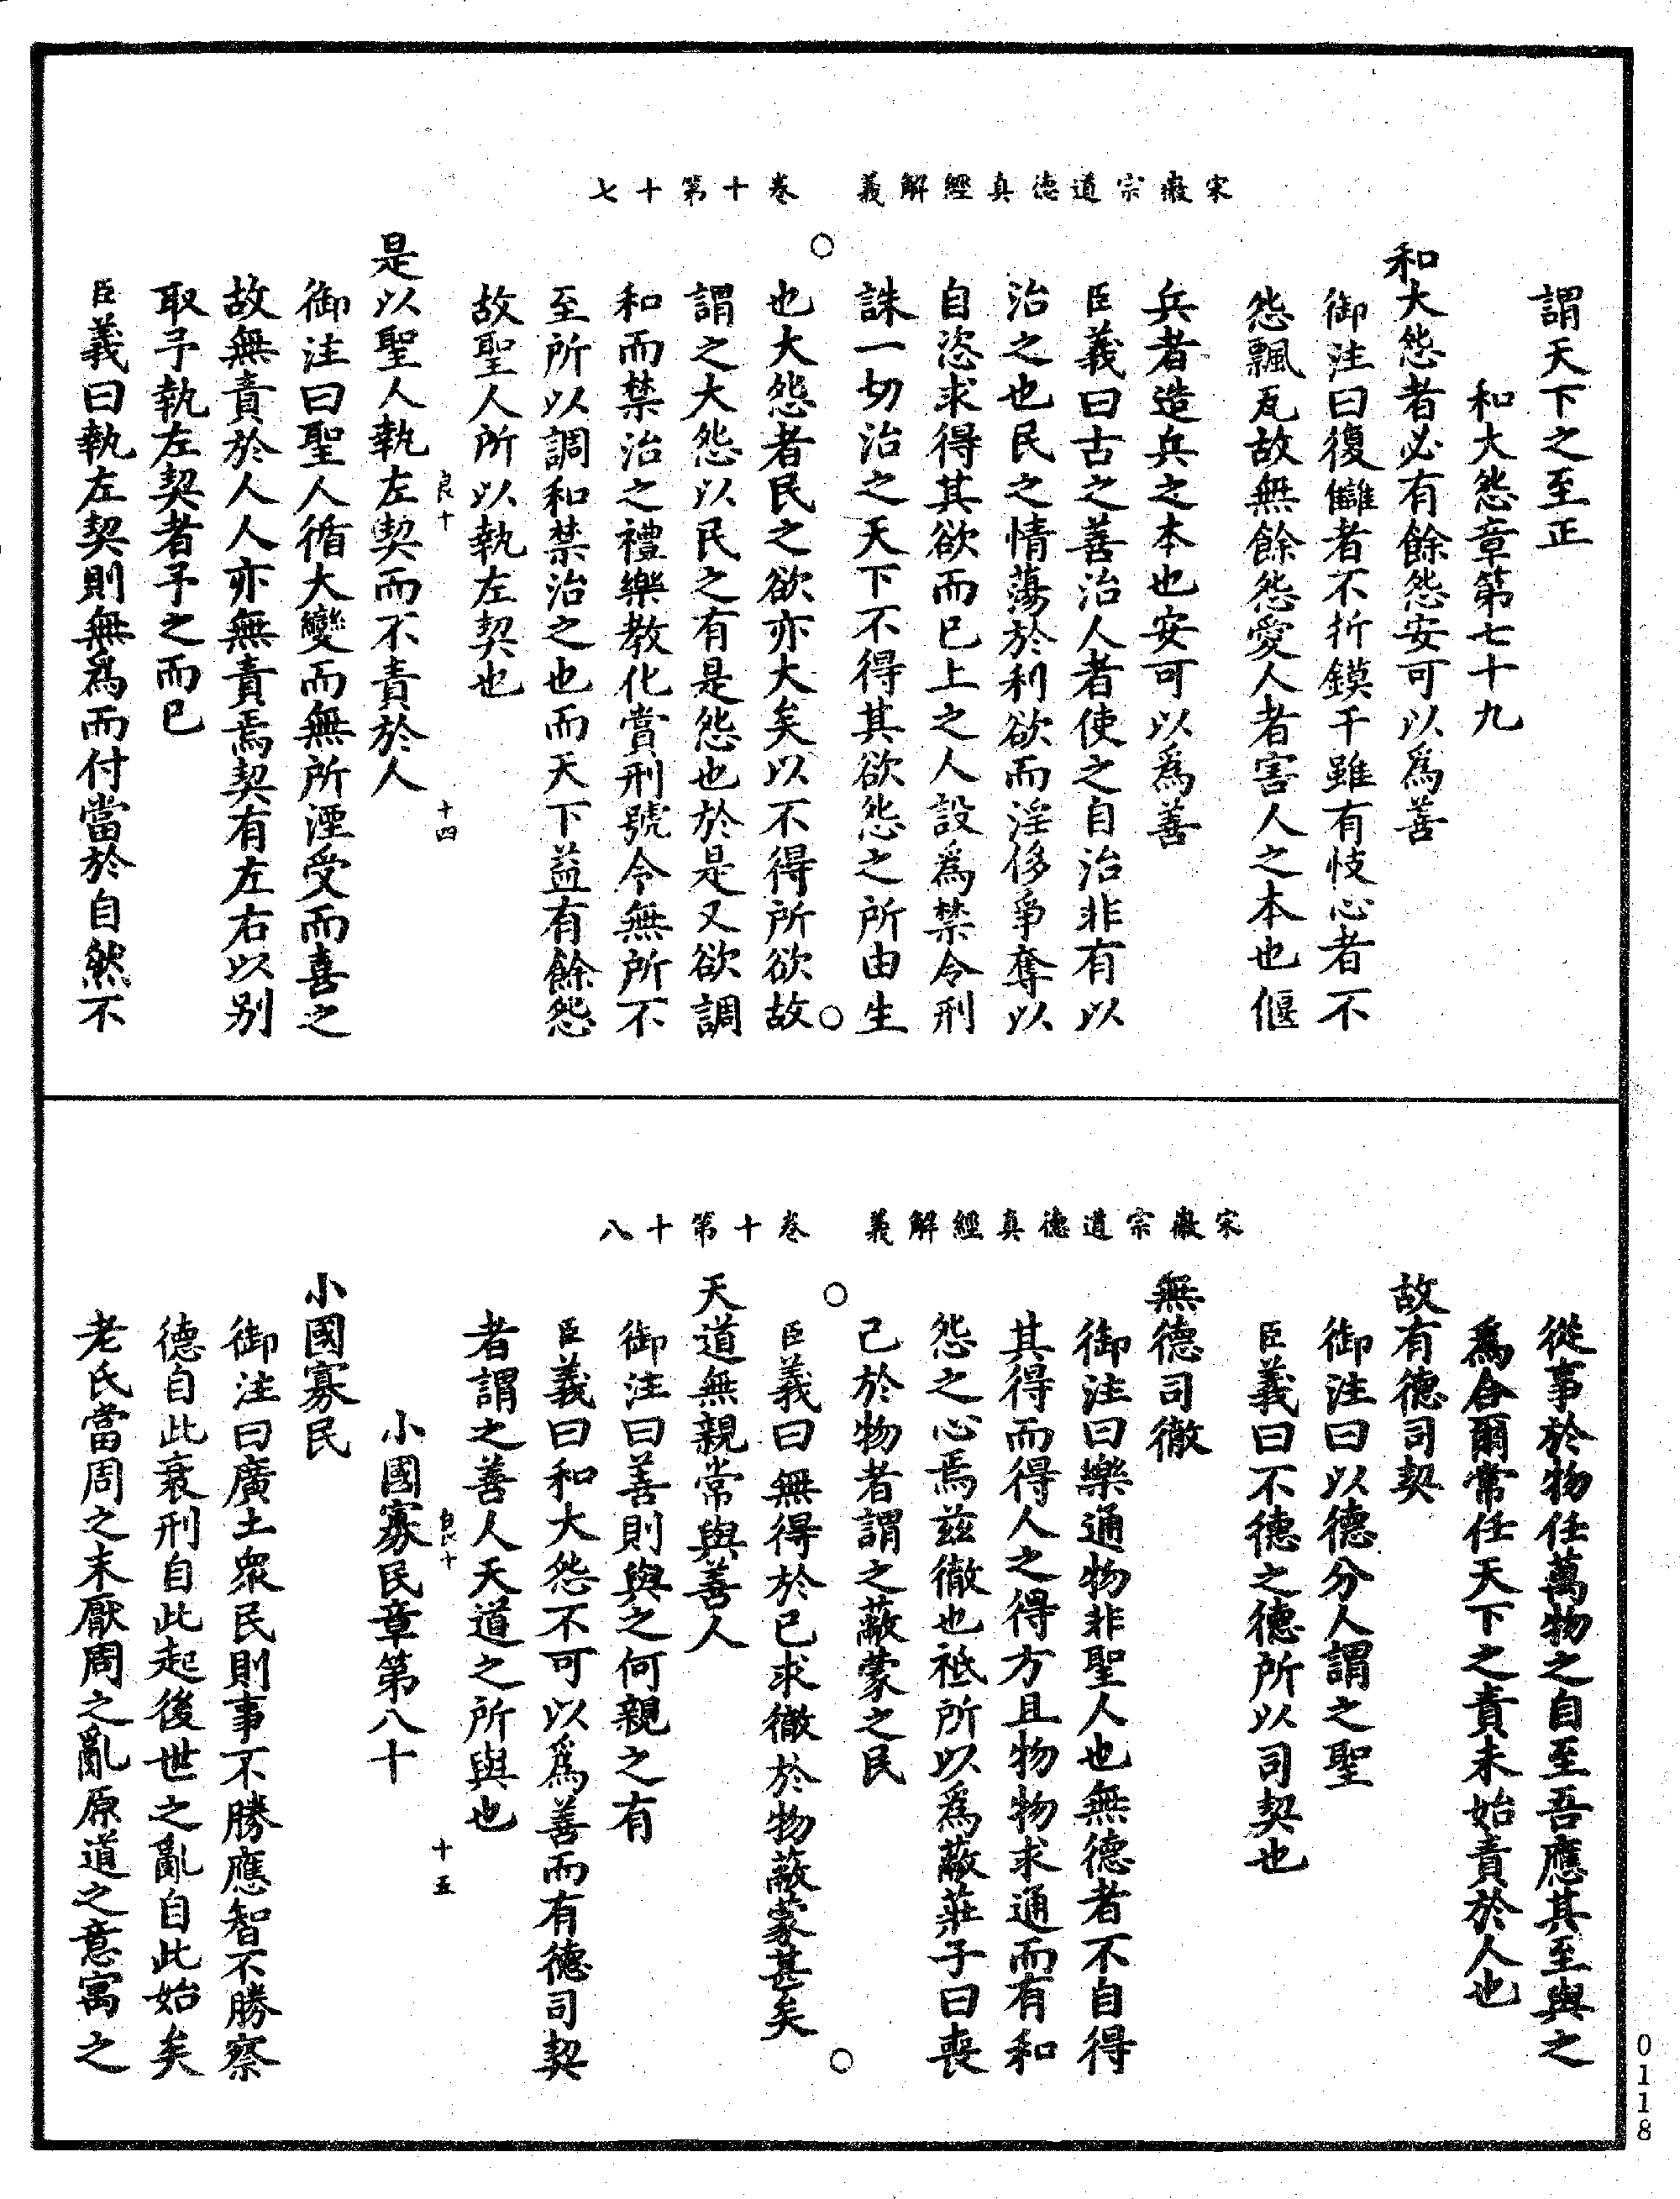 宋徽宗道德真經解義　卷十第十七
謂天下之至正
和大怨章第七十九
和大怨者必有餘怨安可以爲善
御注曰復讎者不折鏌干雖有忮心者不
怨飄瓦故無餘怨愛人者害人之本也偃
兵者造兵之本也安可以爲善
臣義曰古之善治人者使之自治非有以
治之也民之情蕩於利欲而淫侈爭奪以
自恣求得其欲而已上之人設爲禁令刑
誅一切治之天下不得其欲怨之所由生
也大怨者民之欲亦大矣以不得所欲故
謂之大怨以民之有是怨也於是又欲調
和而禁治之禮樂教化賞刑號令無所不
至所以調和禁治之也而天下益有餘怨
故聖人所以執左契也
良十　十四
是以聖人執左契而不責於人
御注曰聖人循大變而無所湮受而喜之
故無責於人人亦無責焉契有左右以別
取予執左契者予之而已
臣義曰執左契則無爲而付當於自然不
宋徽宗道德真經解義　卷十第十八
從事於物任萬物之自至吾應其至與之
爲合爾常任天下之責未始責於人也
故有德司契
御注曰以德分人謂之聖
臣義曰不德之德所以司契也
無德司徹
御注曰樂通物非聖人也無德者不自得
其得而得人之得方且物物求通而有和
怨之心焉茲徹也祗所以爲蔽莊子曰喪
己於物者謂之蔽蒙之民
臣義曰無得於已求徹於物蔽蒙甚矣
天道無親常與善人
御注曰善則與之何親之有
臣義曰和大怨不可以爲善而有德司契
者謂之善人天道之所與也
良十　十五
小國寡民章第八十
小國寡民
御注曰廣土衆民則事不勝應智不勝察
德自此衰刑自此起後世之亂自此始矣
老氏當周之末厭周之亂原道之意寓之
0118